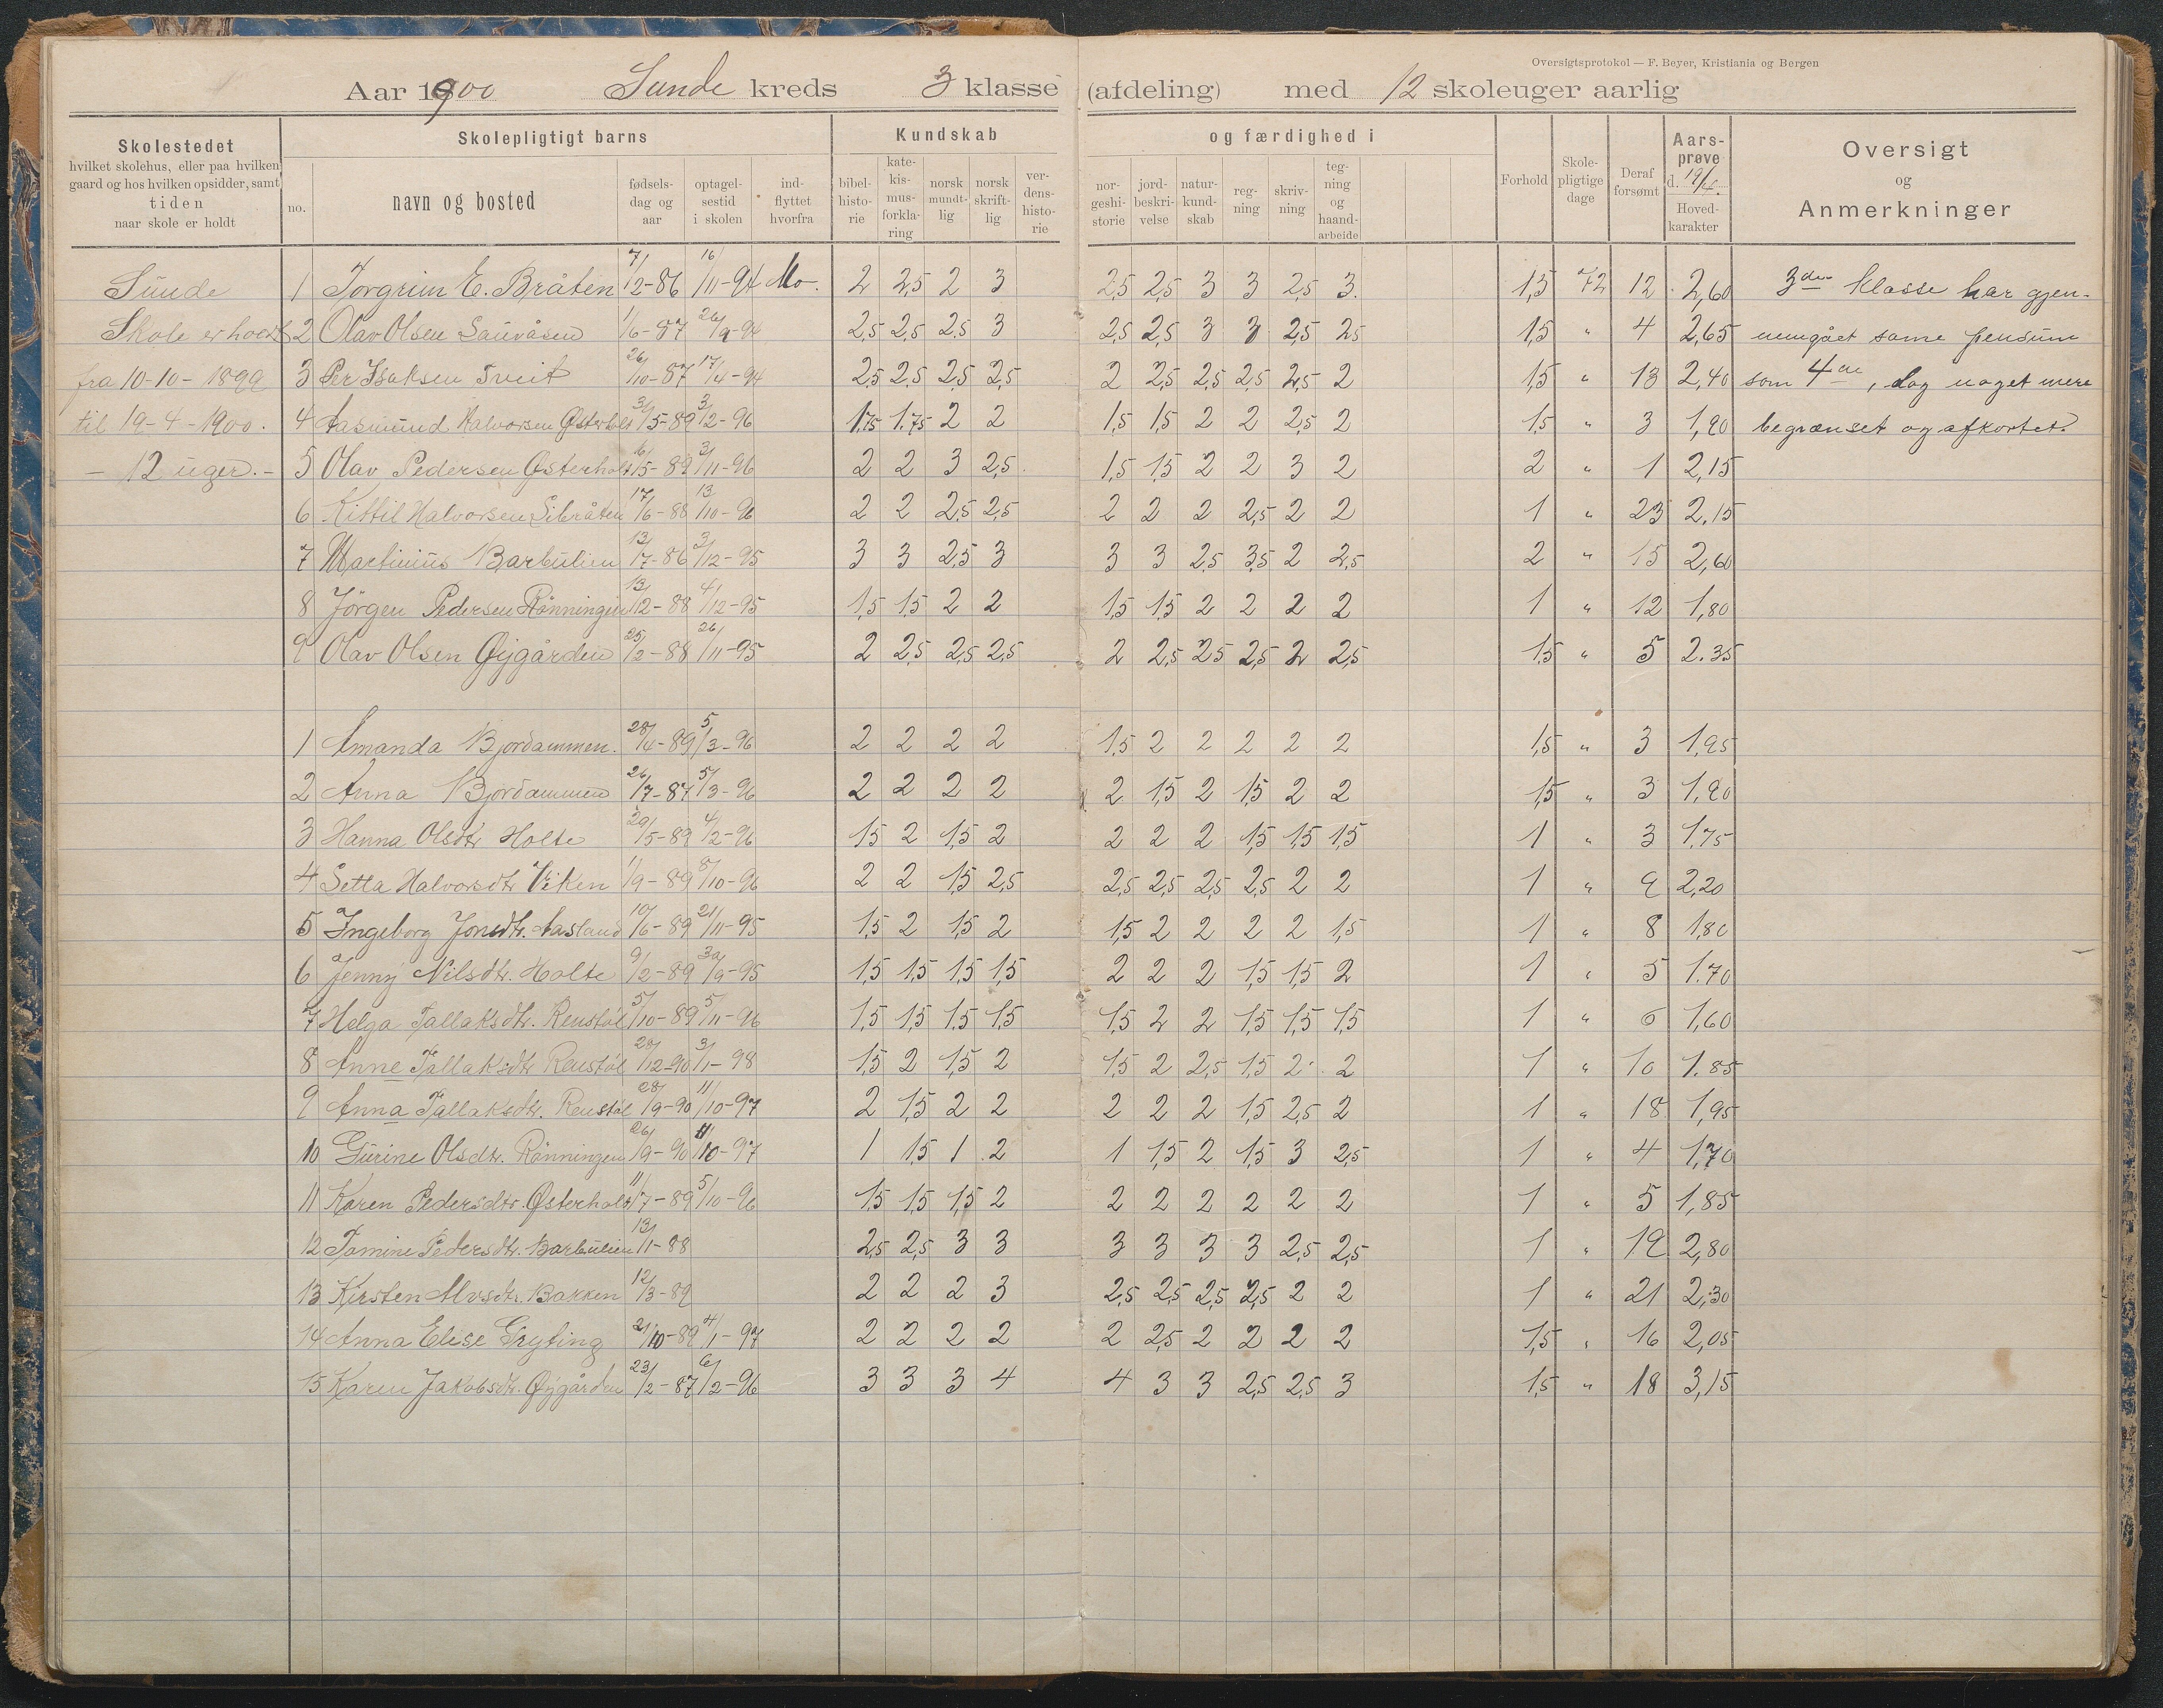 Oversigtsprotokol — F. Beyer, Kristiania og Bergen
Aar 1900 Sunde kreds 3 klasse (afdeling) med 12 skoleuger aarlig
Skolestedet
hvilket skolehus, eller paa hvilken
gaard og hos hvilken opsidder, samt
tiden
naar skole er holdt
Skolepligtigt barns
no.
navn og bosted
fødselsdag og aar
optagelsestid i skolen
indflyttet hvorfra
Kundskab og færdighed i
bibelhistorie
katekismusforklaring
norsk mundtlig
norsk skriftlig
verdenshistorie
norgeshistorie
jordbeskrivelse
naturkundskab
regning
skrivning
tegning og haandarbeide
Forhold
Skolepligtige dage
Deraf forsømt
Aarsprøve d. 19/4
Hovedkarakter
Oversigt
og
Anmerkninger
Sunde
Skole er holdt
fra 10-10-1899
til 19-4-1900.
- 12 uger. -
1 Torgrim E. Bråten 7/2-86 16/11-94 Mo. 2 2,5 2 3 2,5 2,5 3 3 2,5 3. 1,5 72 12 2,60
2 Olav Olsen Sauvåsen 1/6-87 26/9-94 2,5 2,5 2,5 3 2,5 2,5 3 3 2,5 2,5 1,5 " 4 2,65
3 Per Isaksen Tveit 26/10-87 17/4-94 2,5 2,5 2,5 2,5 2 2,5 2,5 2,5 2,5 2 1,5 " 13 2,40
4 Aasmund Halvorsen Østerholt 31/5-89 3/2-96 1.75 1.75 2 2 1,5 1,5 2 2 2,5 2 1,5 " 3 1,90
5 Olav Pedersen Østerholt 6/5-89 3/11-96 2 2 3 2,5 1,5 1,5 2 2 3 2 2 " 1 2,15
6 Kittil Halvorsen Libråten 17/6-88 13/10-96 2 2 2,5 2,5 2 2 2 2,5 2 2 1 " 23 2.15
7 Martinius Barbulien 13/7-86 3/12-95 3 3 2,5 3 3 3 2,5 3,5 2 2,5 2 " 15 2,60
8 Jörgen Pedersen Rönningen 13/12-88 4/12-95 1,5 1,5 2 2 1,5 1,5 2 2 2 2 1 " 12 1,80
9 Olav Olsen Øygården 25/2-88 26/11-95 2 2,5 2,5 2,5 2 2,5 2,5 2,5 2 2,5 1,5 " 5 2.35
3die klasse har gjen-
nemgået same pensum
som 4de, dog noget mere
begrænset og afkortet.
1 Amanda Bjordammen. 28/4-89 5/3-96 2 2 2 2 1,5 2 2 2 2 2 1,5 " 3 1,95
2 Anna Bjordammen 26/7-87 5/3-96 2 2 2 2 2 1,5 2 1,5 2 2 1,5 " 3 1,90
3 Hanna Olsdtr Holte 29/5-89 4/2-96 1,5 2 1,5 2 2 2 2 1,5 1,5 1,5 1 " 3 1,75
4 Setta Halvorsdtr Viken 1/9-89 8/10-96 2 2 1,5 2,5 2,5 2,5 2,5 2,5 2 2 1 " 9 2,20
5 Ingeborg Jonsdtr. Aasland 10/6-89 21/11-95 1,5 2 1,5 2 1,5 2 2 2 2 1,5 1 " 8 1,80
6 Jenny Nilsdtr. Holte 9/2-89 30/9-95 1,5 1,5 1,5 1,5 2 2 2 1,5 1,5 2 1 " 5 1.70
7 Helga Tallaksdtr. Renstøl 5/10-89 5/11-96 1,5 1,5 1,5 1,5 1,5 2 2 1,5 1,5 1,5 1 " 6 1,60
8 Anne Tallaksdtr Renstøl 28/12-90 3/1-98 1,5 2 1,5 2 1,5 2 2,5 1,5 2 2 1 " 10 1.85
9 Anna Tallaksdtr. Renstøl 28/9-90 11/10-97 2 1,5 2 2 2 2 2 1,5 2,5 2 1 " 18 1,95
10 Gurine Olsdtr. Rönningen 26/9-90 11/10-97 1 1,5 1 2 1 1,5 2 1,5 3 2,5 1 " 4 1,70
11 Karen Pedersdtr. Østerholt 11/7-89 5/10-96 1,5 1,5 1,5 2 2 2 2 2 2 2 1 " 5 1,85
12 Tomine Pedersdtr. Barbulien 13/1-88 2,5 2,5 3 3 3 3 3 3 2,5 2,5 1 " 19 2,80
13 Kirsten Alvsdtr. Bakken 12/3-89 2 2 2 3 2,5 2,5 2,5 2,5 2 2 1 " 21 2,30
14 Anna Elise Gryting 21/10-89 4/1-97 2 2 2 2 2 2,5 2 2 2 2 1,5 " 16 2,05
15 Karen Jakobsdtr. Øygården 23/2-87 6/2-96 3 3 3 4 4 3 3 2,5 2,5 3 1,5 " 18 3,15